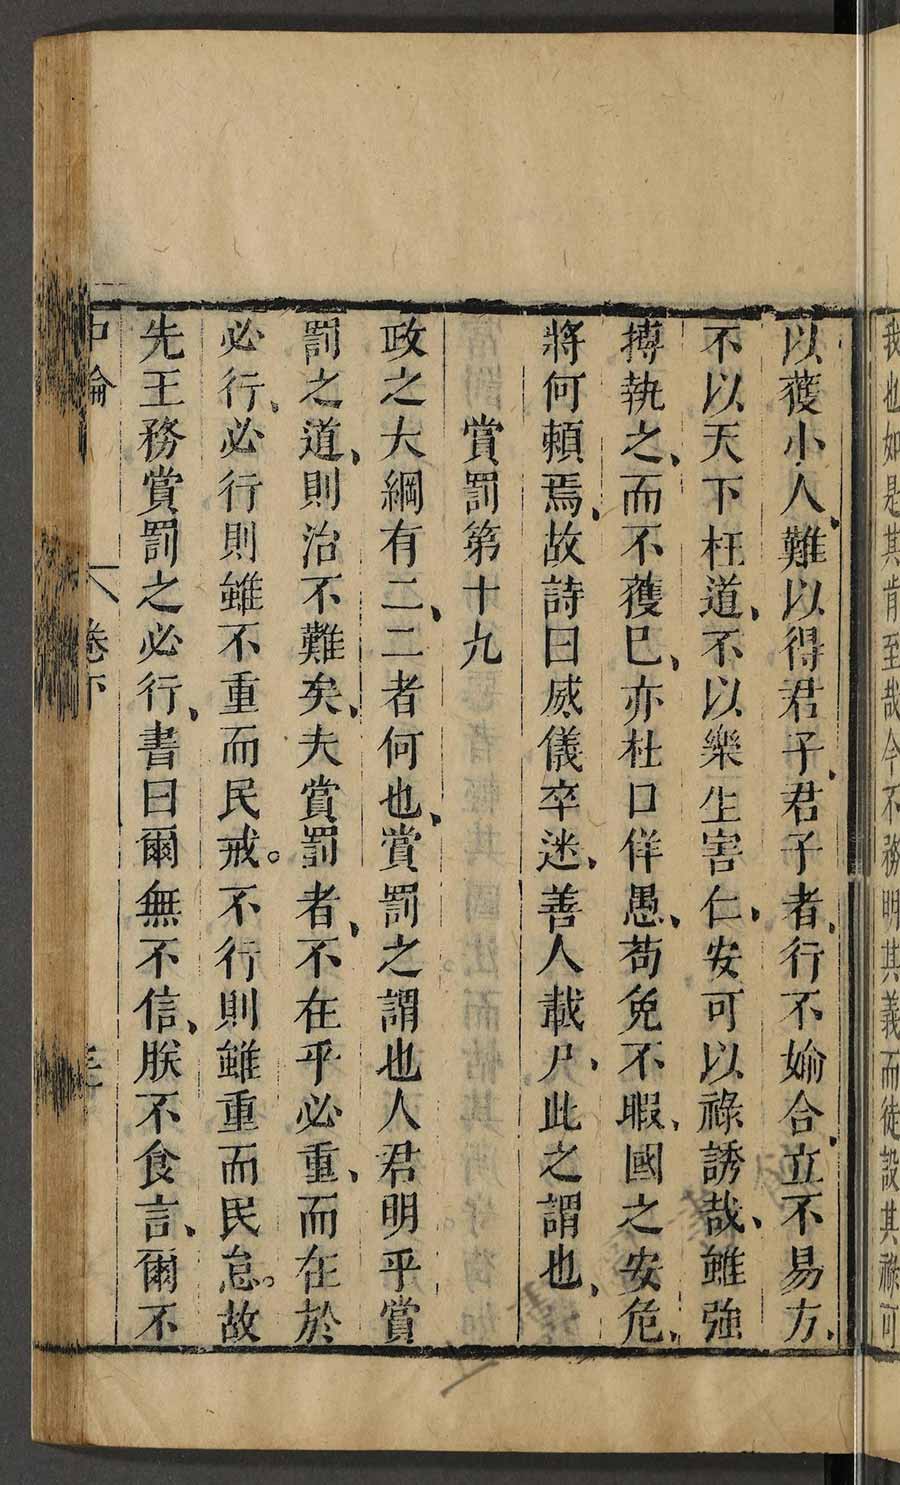 我也如是其肯至哉今不務明其義而徒設其祿可
以獲小人、難以得君子、君子者、行不媮合、立不易方、
不以天下枉道、不以樂生害仁、安可以祿誘哉、雖強
搏執之、而不獲已、亦杜口佯愚、苟免不暇、國之安危、
將何賴焉、故詩曰威儀卒迷、善人載尸、此之謂也、
賞罰第十九
政之大綱有二、二者何也、賞罰之謂也人君明乎賞
罰之道、則治不難矣、夫賞罰者、不在乎必重、而在於
必行、必行則雖不重而民戒。不行則雖重而民怠。故
先王務賞罰之必行、書曰爾無不信、朕不食言、爾不
中論
卷下